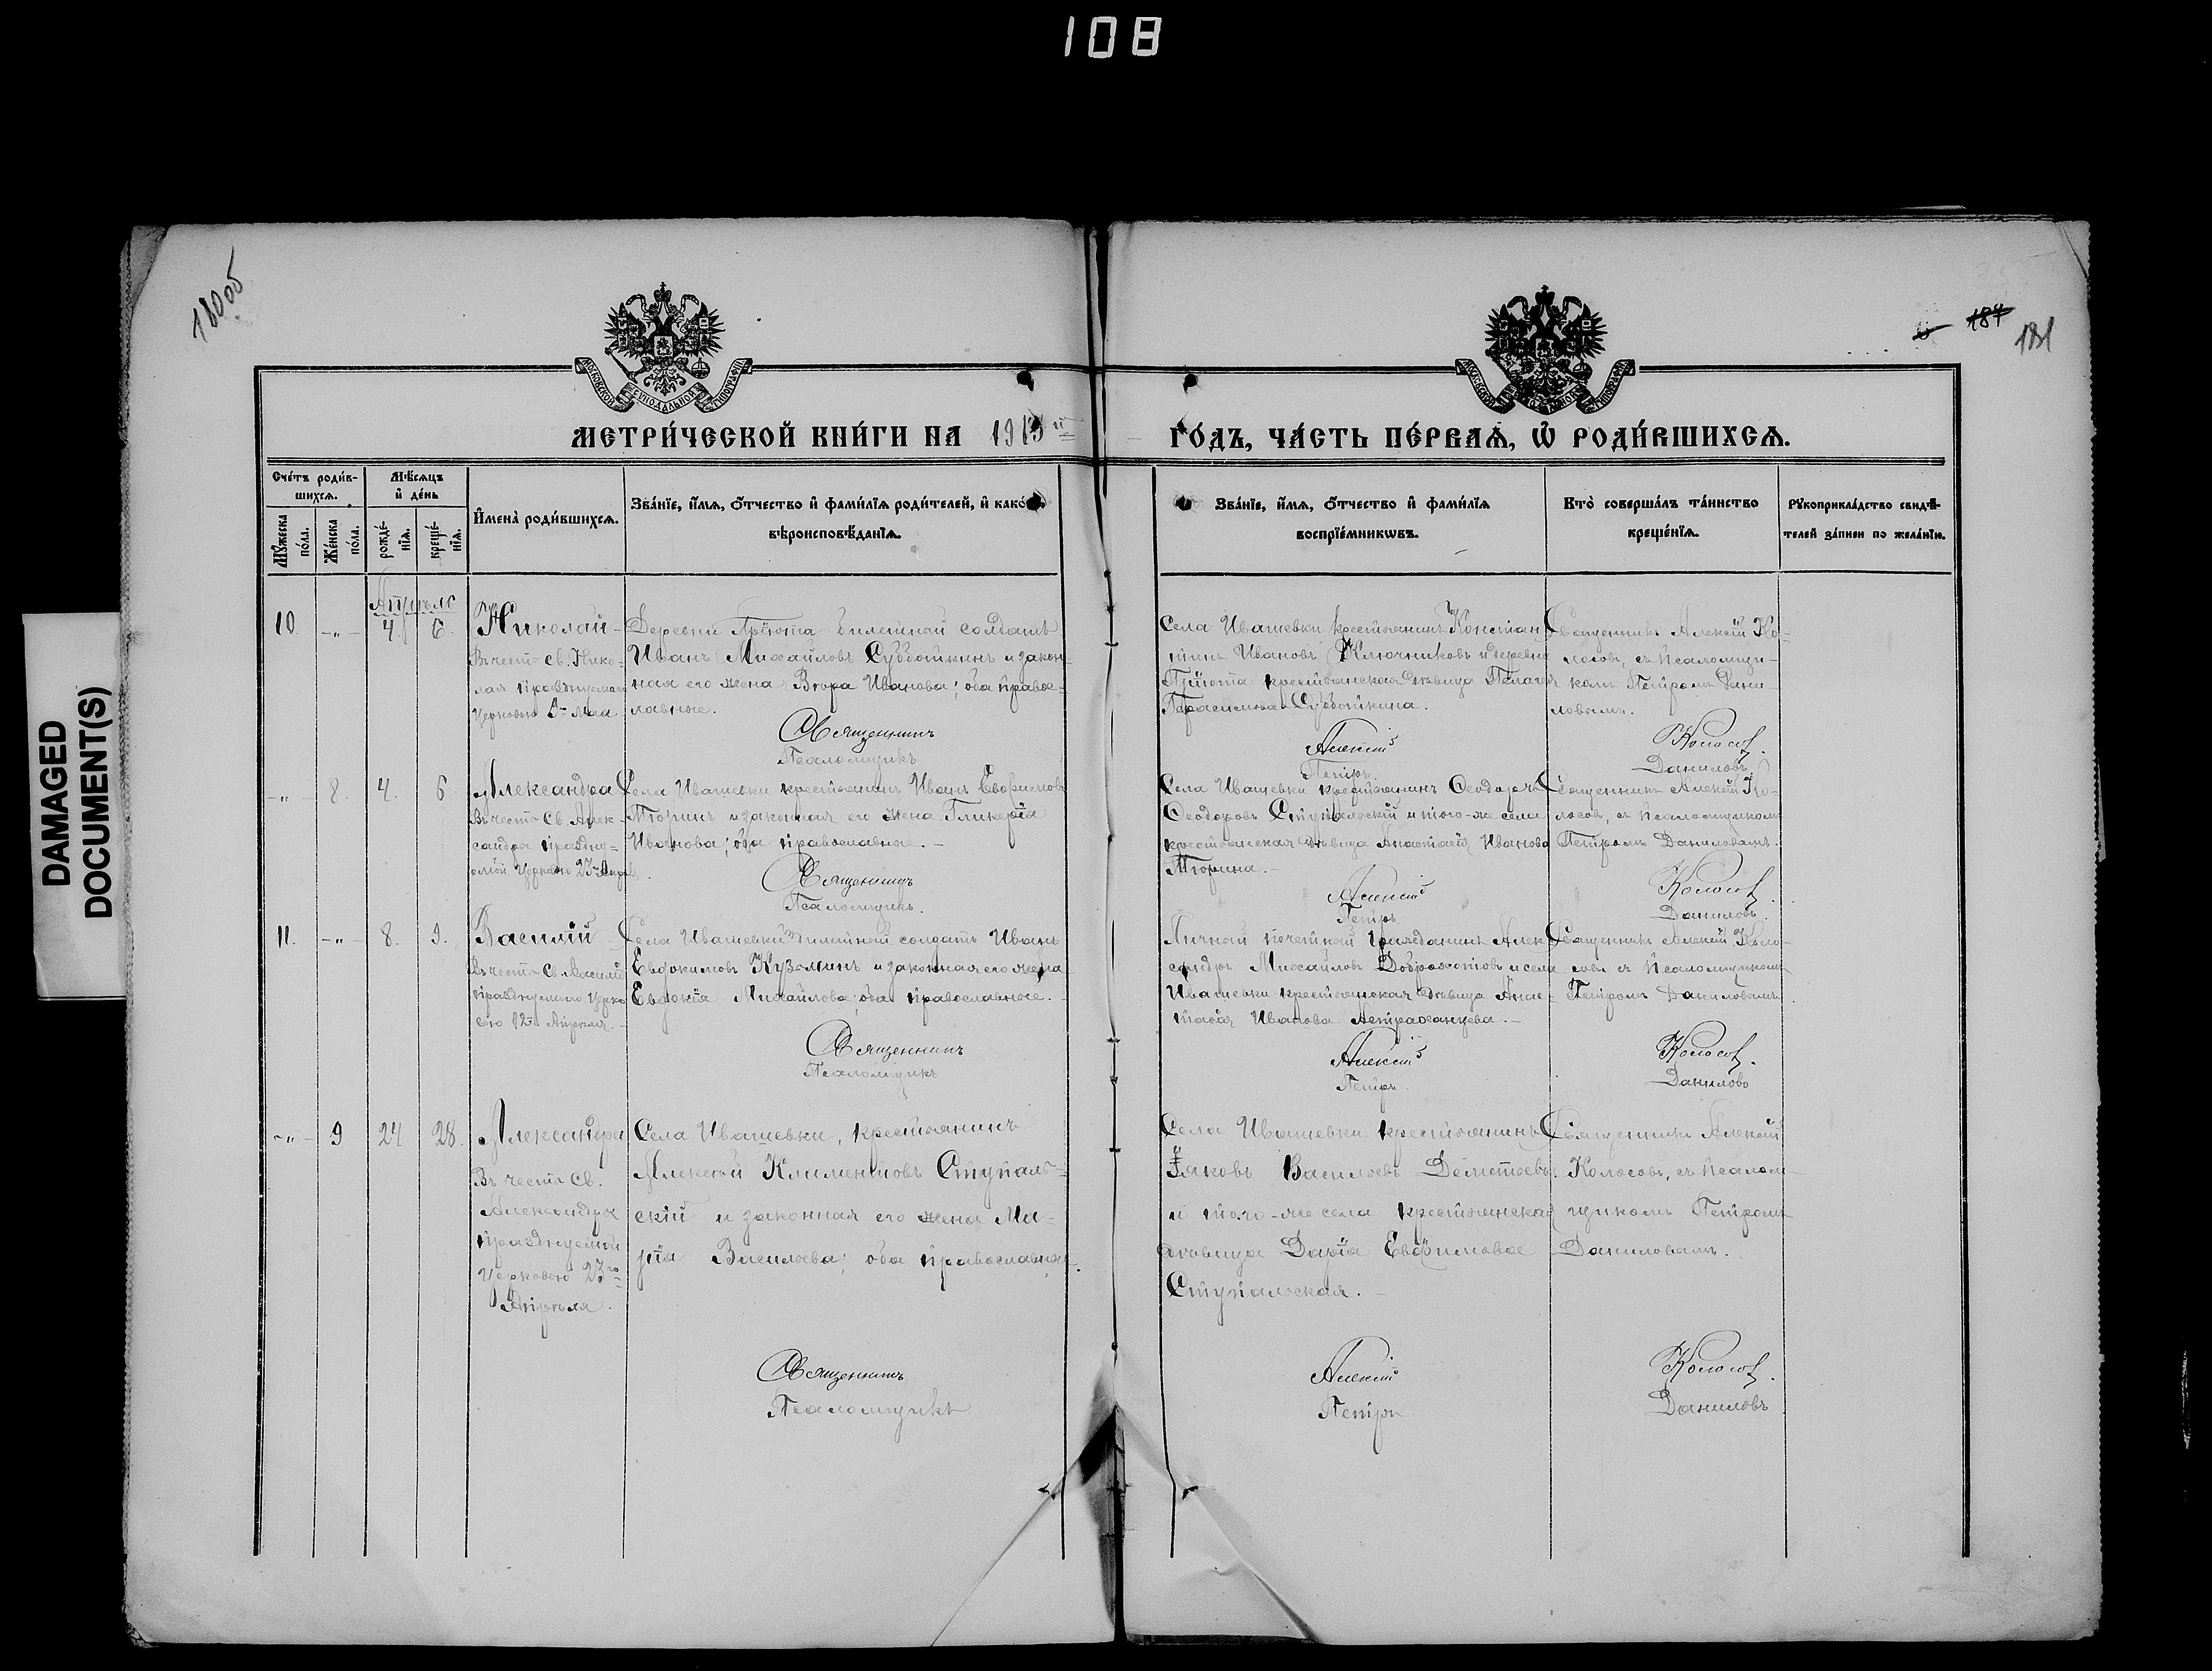 108
180 об
187
181
DAMAGED
DOCUMENT(S)
МОСКОВСКОЙ СѴНОДАЛЬНОЙ ТИПОГРАФІИ
МОСКОВСКОЙ СѴНОДАЛЬНОЙ ТИПОГРАФІИ
МЕТРИ́ЧЕСКОЙ КНИ́ГИ НА 1913 й
ГО́ДЪ, ЧА́СТЬ ПЕ́РВАѦ, Ѡ҆ РОДИ́ВШИХСѦ.
Сче́тъ роди́в-
шихсѧ.
Мꙋ́жеска по́ла.
Же́нска по́ла.
Мѣ́сѧцъ
и҆ де́нь
рожде́-
нїѧ.
креще́-
нїѧ.
И҆мена̀ роди́вшихсѧ.
Зва́нїе, и҆́мѧ, ѻ҆́тчество и҆ фами́лїѧ роди́телей, и҆ како́
вѣроисповѣ́данїѧ.
Зва́нїе, и҆́мѧ, ѻ҆́тчество и҆ фами́лїѧ
воспрїе́мникѡвъ.
Кто̀ соверша́лъ та́инство
креще́нїѧ.
Рꙋкоприкла́дство свидѣ́-
телей за́писи по жела́нїю.
Апрѣль
10. -„- 4. 6.
Николай
Въ честь св. Нико-
лая празднуемаго
Церковью 9го Мая.
Деревни Прiюта билетной солдатъ
Иванъ Михайловъ Субботкинъ и закон-
ная его жена Вѣра Иванова; оба право-
славные.
Священникъ
Псаломщикъ
Села Ивашевки крестьянинъ Констан-
тинъ Ивановъ Ключниковъ и деревни
Прiюта крестьянская дѣвица Пелагея
Герасимова Субботкина.
Алексiй
Петръ
Священникъ Алексiй Ко-
лосовъ, съ псаломщи-
комъ Петромъ Дани-
ловымъ.
Колосов.
Даниловъ
-„- 8. 4. 6.
Александра
Въ честь Св. Алек-
сандры праздну-
емой Церковью 23го Апрѣля.
Села Ивашевки крестьянинъ Иванъ Евфимовъ
Тюринъ и законная его жена Гликерiя
Иванова; оба православные. -
Священникъ
Псаломщикъ.
Села Ивашевки крестьянинъ Ѳеодоръ
Ѳеодоровъ Ступальскiй и того-же села
крестьянская дѣвица Анастасiя Иванова
Тюрина. -
Алексiй
Петръ
Священникъ Алексiй Ко-
лосовъ, съ псаломщикомъ
Петромъ Даниловымъ.
Колосов.
Даниловъ.
11. -„- 8. 9.
Василiй
Въ честь Св. Василiя
празднуемаго Церко-
вью 12го Апрѣля. -
Села Ивашевки билетной солдатъ Иванъ
Евдокимовъ Кузьминъ и законная его жена
Евдокiя Михайлова; оба православные. -
Священникъ
Псаломщикъ
Личной почетной гражданинъ Алек-
сандръ Михайловъ Доброхотовъ и села
Ивашевки крестьянская дѣвица Анас-
тасiя Иванова Астраханцева. -
Алексiй
Петръ
Священникъ Алексiй Коло-
совъ съ псаломщикомъ
Петромъ Даниловымъ.
Колосов.
Даниловъ
-„- 9 24 28.
Александра
Въ честь Св.
Александры
празднуемой
Церковью 23го
Апрѣля.
Села Ивашевки, крестьянинъ
Алексѣй Климентовъ Ступаль-
скiй и законная его жена Ма-
рiя Васильева; оба православные.
Священникъ
Псаломщикъ
Села Ивашевки крестьянинъ
Iаковъ Васильевъ Дементьевъ
и того-же села крестьянская
дѣвица Дарiя Евфимова
Ступальская. -
Алексiй
Петръ
Священникъ Алексiй
Колосовъ, съ псалом-
щикомъ Петромъ
Даниловымъ.
Колосов.
Даниловъ